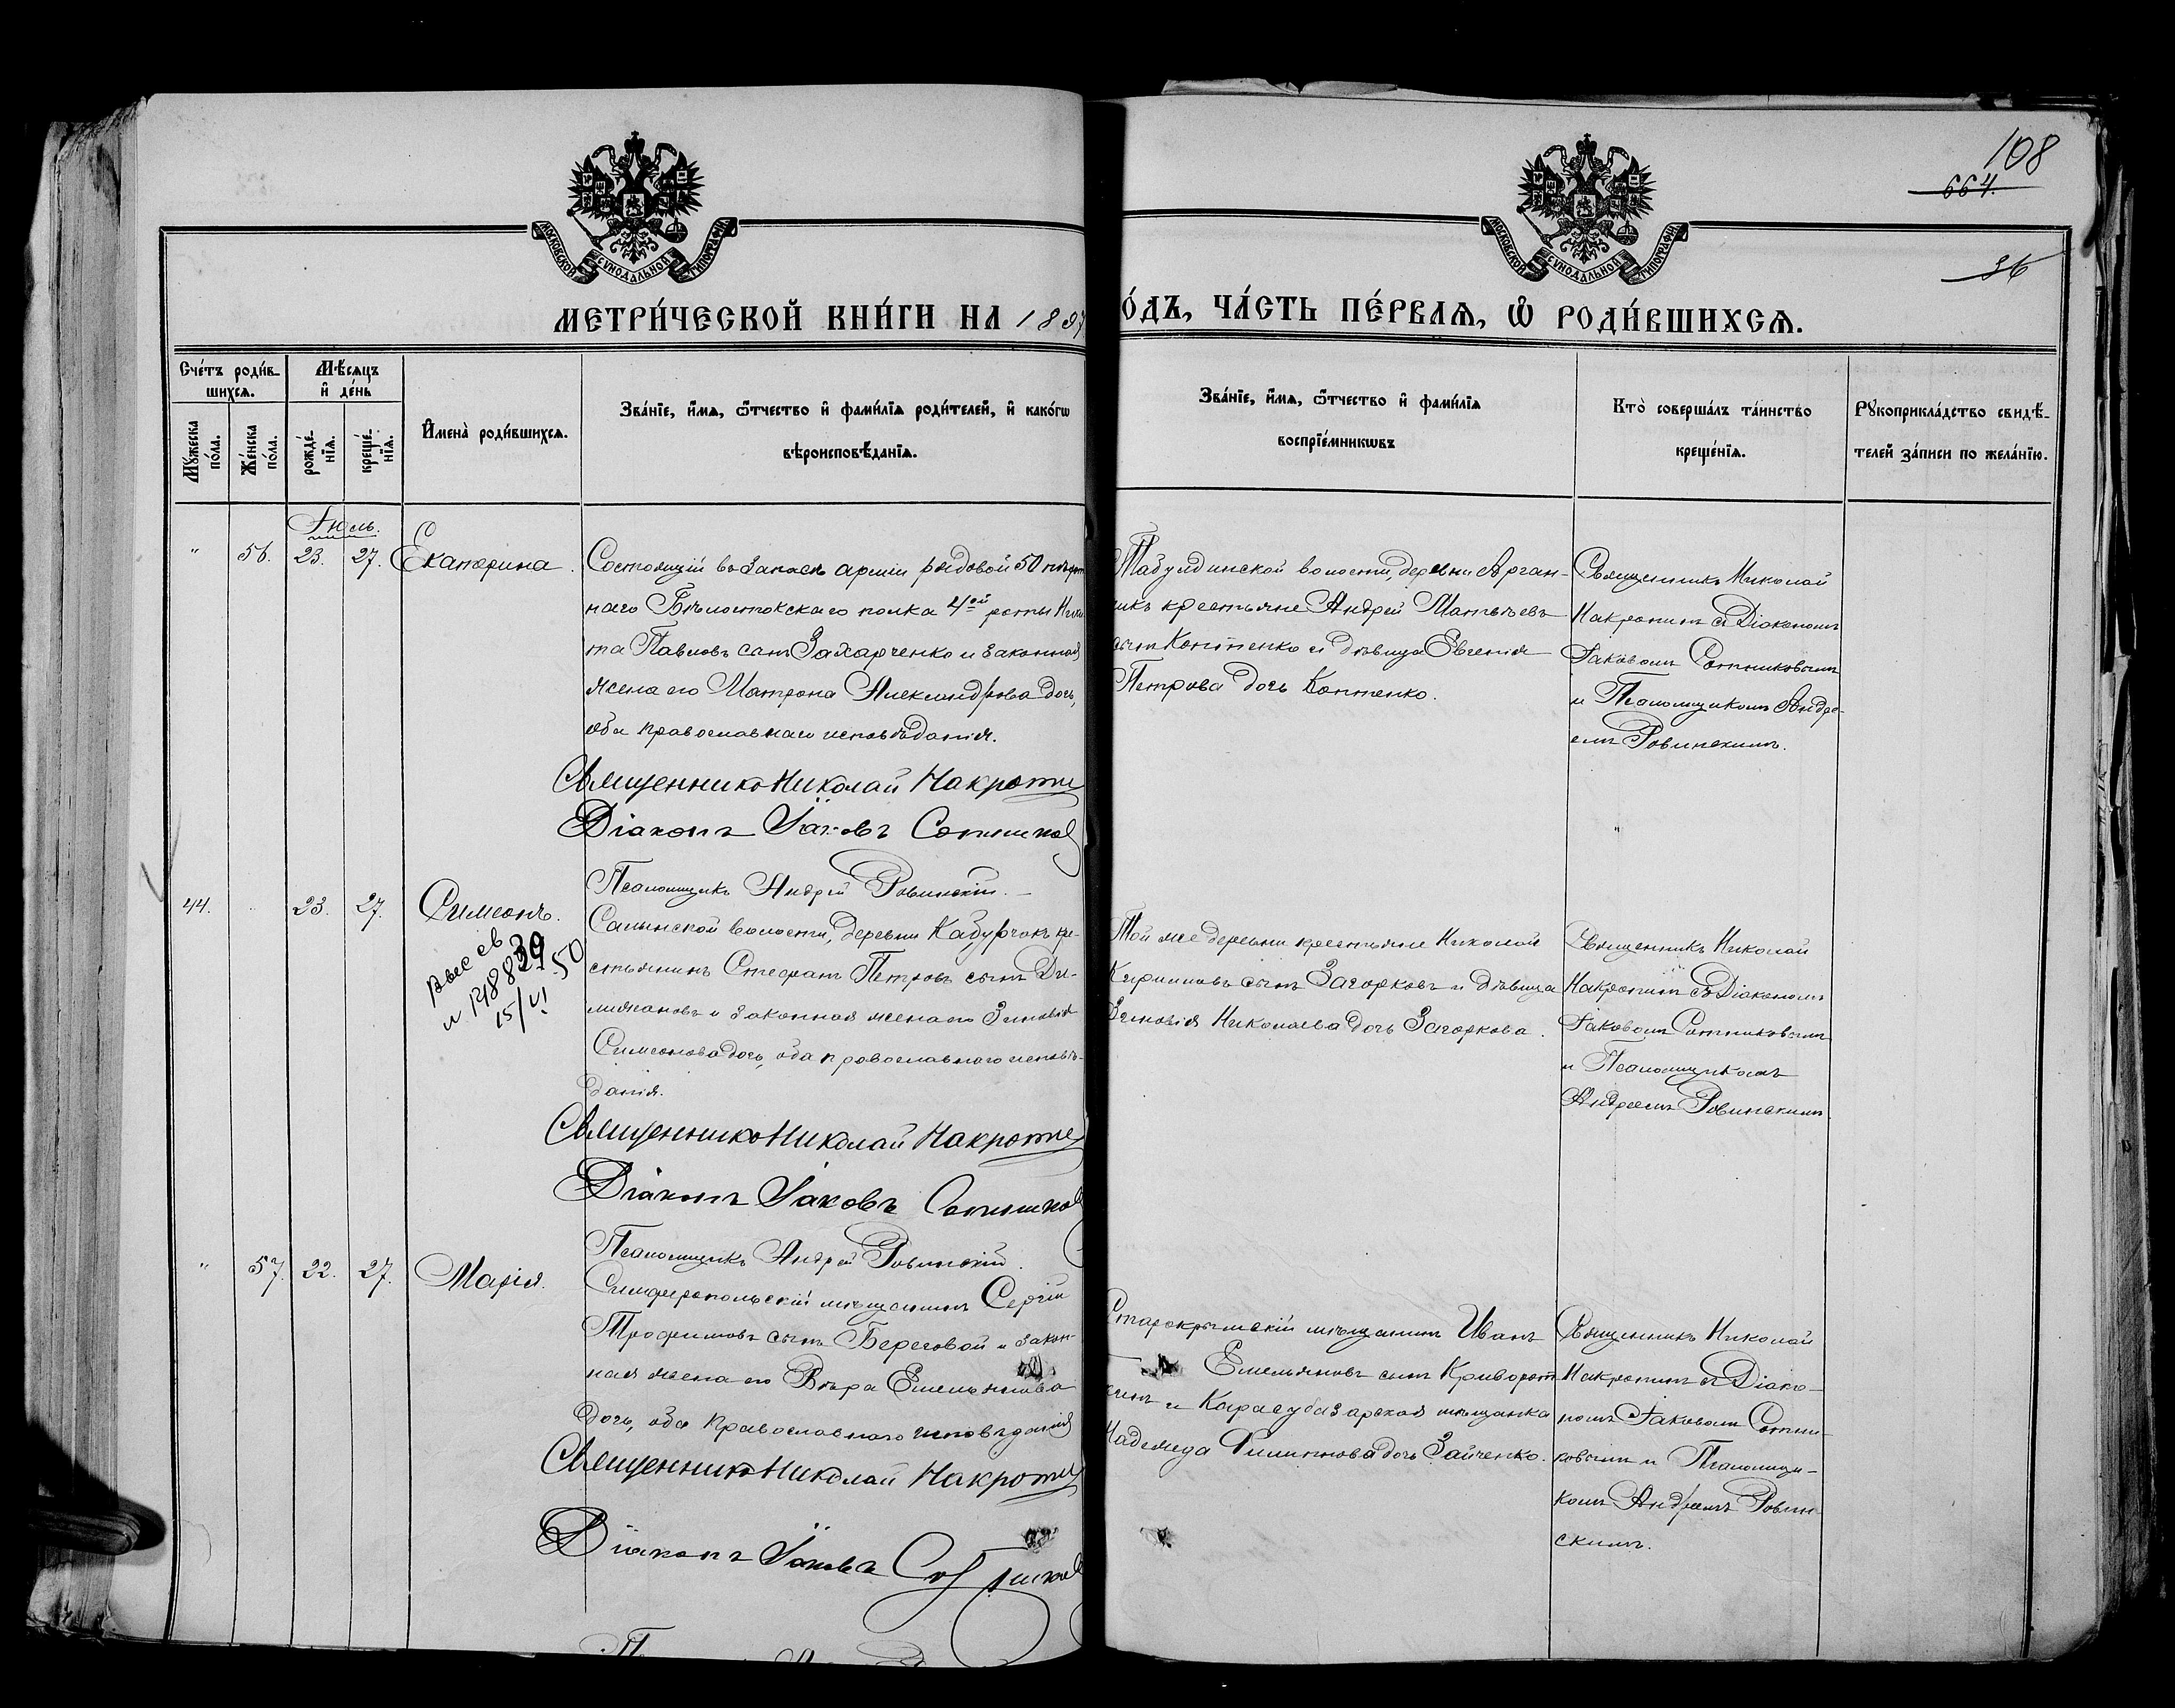 108
664.
36
МОСКОВСКОЙ СУНОДАЛЬНОЙ ТИПОГРАФІИ
МОСКОВСКОЙ СУНОДАЛЬНОЙ ТИПОГРАФІИ
МЕТРИ́ЧЕСКОЙ КНИ́ГИ НА 1897
О́ДЪ, ЧА́СТЬ ПЕ́РВАѦ, Ѡ҆ РОДИ́ВШИХСѦ.
Сче́тъ роди́в-
шихсѧ.
Мꙋ́жеска по́ла.
Же́нска по́ла.
Мѣ́сѧцъ
и҆ де́нь
рожде́-
нїѧ.
креще́-
нїѧ.
И҆мена̀ роди́вшихсѧ.
Зва́нїе, и҆́мѧ, ѻ҆́тчество и҆ фами́лїѧ роди́телей, и҆ како́гѡ
вѣроисповѣ́данїѧ.
Зва́нїе, и҆́мѧ, ѻ҆́тчество и҆ фами́лїѧ
воспрїе́мникѡвъ
Кто̀ соверша́лъ та́инство
креще́нїѧ.
Рꙋкоприкла́дство свидѣ́-
телей за́писи по жела́нїю.
Іюль.
" 56. 23. 27. Екатерина.
Состоящій въ запасѣ арміи рядовой 50 пѣхот
наго Бѣлостокскаго полка 4ой роты Ники
та Павловъ сынъ Захарченко и законная
жена его Матрона Александрова дочь,
оба православнаго исповѣданія.
Священникъ Николай Накропи
Діаконъ Іаковъ Сотников
Псаломщикъ Андрей Ровинскій.
Табулдинской волости, деревни Арган-
икъ крестьяне Андрей Матвѣевъ
сынъ Коптенко и дѣвица Евгенія
Петрова дочь Коптенко.
Священникъ Николай
Накропинъ съ Діакономъ
Іаковомъ Сотниковымъ
и Псаломщикомъ Андре-
емъ Ровинскимъ.
44. 23. 27. Симеонъ.
15/VI 50
Салынской волости, деревни Кабурчакъ кре-
стьянинъ Стефанъ Петровъ сынъ Ди-
миановъ и законная жена его Зиновія
Симеонова дочь, оба православнаго исповѣ-
данія.
Священникъ Николай Накропи
Діаконъ Іаковъ Сотников
Псаломщикъ Андрей Ровинскій.
Той же деревни крестьяне Николай
Кирилловъ сынъ Загорковъ и дѣвица
Зиновія Николаева дочь Загоркова.
Священникъ Николай
Накропинъ съ Діакономъ
Іаковомъ Сотниковымъ
и Псаломщикомъ
Андреемъ Ровинскимъ.
" 57. 22. 27. Марія.
Симферопольскій мѣщанинъ Сергій
Трофимовъ сынъ Береговой и закон-
ная жена его Вѣра Емельянова
дочь, оба православнаго исповѣданія
Священникъ Николай Накропи
Діаконъ Іаковъ Сотников
Старокрымскій мѣщанинъ Иванъ
Емельяновъ сынъ Криворот
кинъ и Карасубазарская мѣщанка
Надежда Филиппова дочь Зайченко.
Священникъ Николай
Накропинъ съ Діако-
номъ Іаковомъ Сотни-
ковымъ и Псаломщи-
комъ Андреемъ Ровин
скимъ.